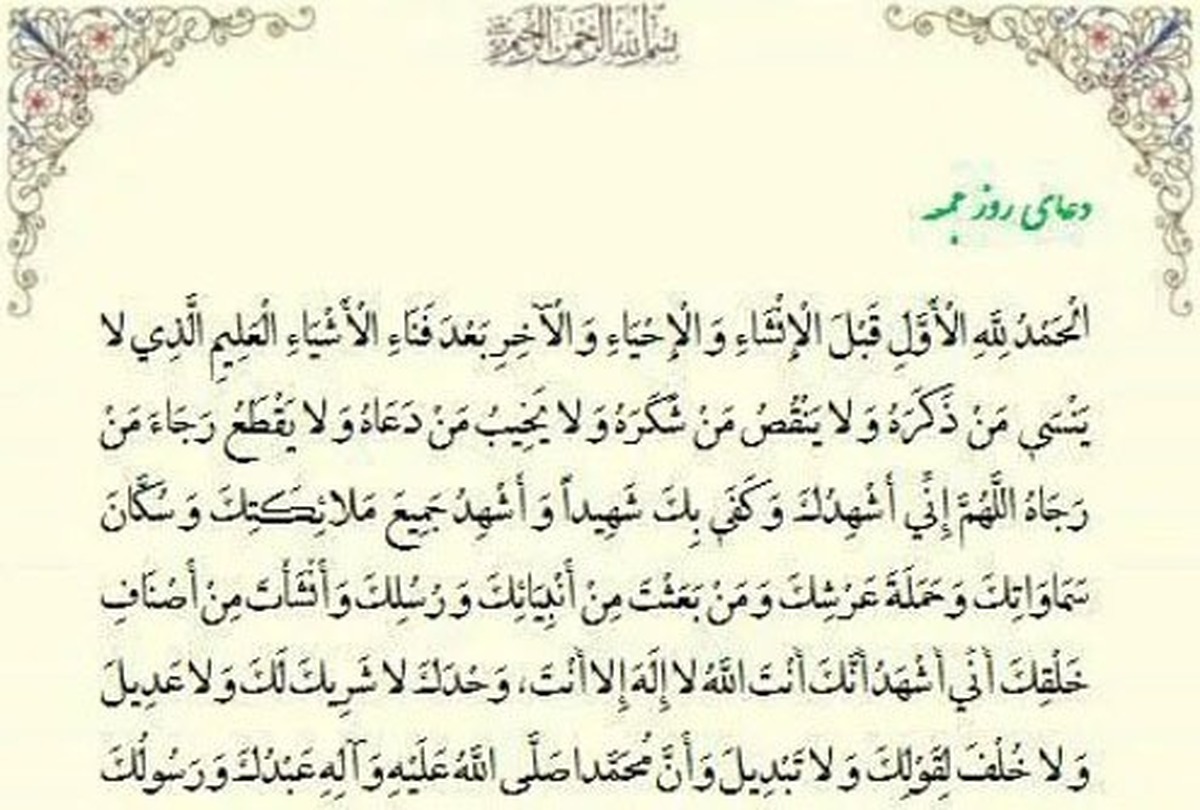 بسم الله الرحمن الرحیم
دعای روز جمعه
الْحَمْدُ لِلَّهِ الْأَوَّلِ قَبْلَ الْإِنْشَاءِ وَ الْإِحْيَاءِ وَ الْآخِرِ بَعْدَ فَنَاءِ الْأَشْيَاءِ الْعَلِيمِ الَّذِي لا
يَنْسَى مَنْ ذَكَرَهُ وَ لا يَنْقُصُ مَنْ شَكَرَهُ وَ لا يَخِيبُ مَنْ دَعَاهُ وَ لا يَقْطَعُ رَجَاءَ مَنْ
رَجَاهُ اللَّهُمَّ إِنِّي أُشْهِدُكَ وَ كَفَى بِكَ شَهِيداً وَ أُشْهِدُ جَمِيعَ مَلائِكَتِكَ وَ سُكَّانَ
سَمَاوَاتِكَ وَ حَمَلَةَ عَرْشِكَ وَ مَنْ بَعَثْتَ مِنْ أَنْبِيَائِكَ وَ رُسُلِكَ وَ أَنْشَأْتَ مِنْ أَصْنَافِ
خَلْقِكَ أَنِّي أَشْهَدُ أَنَّكَ أَنْتَ اللَّهُ لا إِلَهَ إِلا أَنْتَ، وَحْدَكَ لا شَرِيكَ لَكَ وَ لا عَدِيلَ
وَ لا خُلْفَ لِقَوْلِكَ وَ لا تَبْدِيلَ وَ أَنَّ مُحَمَّدا صَلَّى اللَّهُ عَلَيْهِ وَ آلِهِ عَبْدُكَ وَ رَسُولُكَ